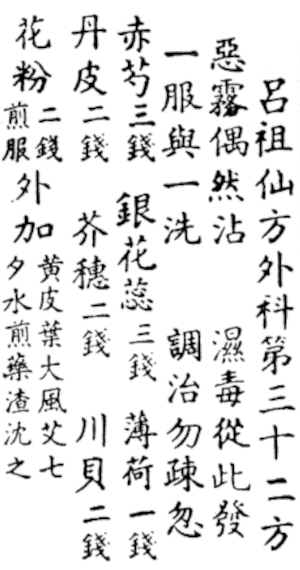 呂祖仙方外科第三十二方
惡霧偶然沾　濕毒從此發
一服與一洗　調治勿疎忽
赤芍三錢　銀花蕊三錢　薄荷一錢
丹皮二錢　芥穗二錢　川貝二錢
花粉二錢煎服外加黃皮葉大風艾七夕水煎藥渣沈之